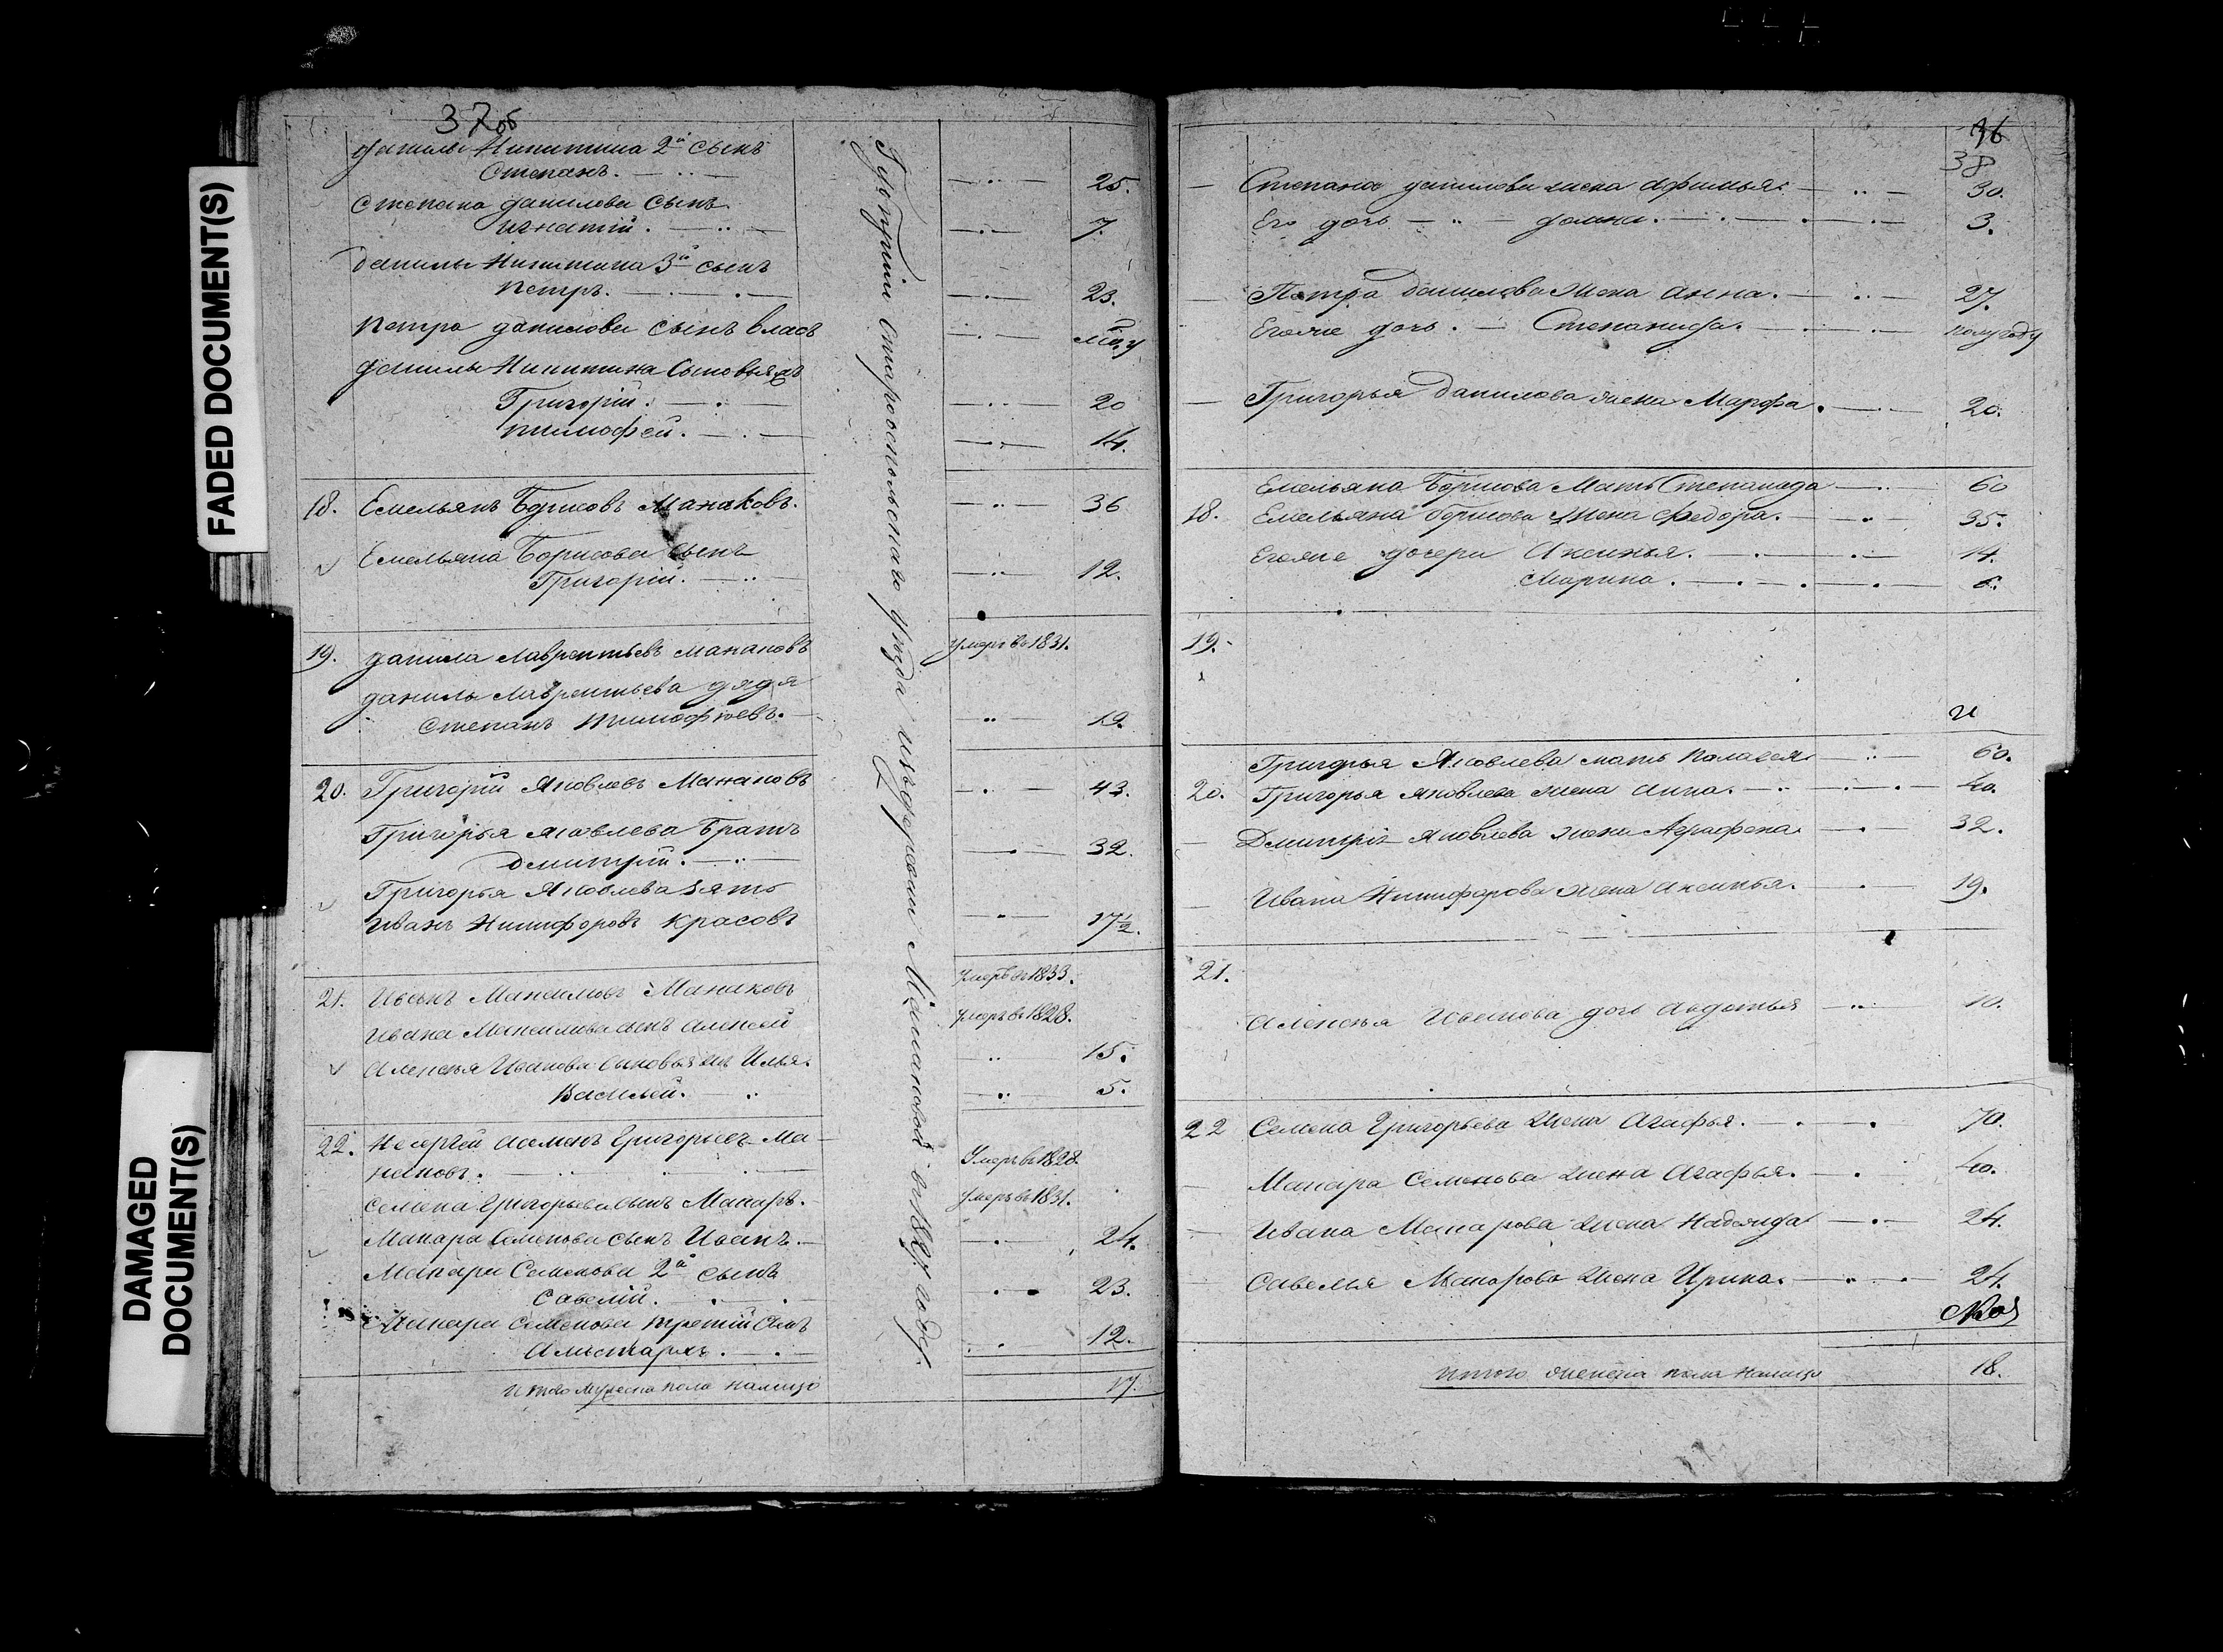 FADED DOCUMENT(S)
DAMAGED DOCUMENT(S)
37об
Данилы Никитина 2й сынъ
Степанъ. 25.
Степана Данилова сынъ
Игнатий. 7.
Данилы Никитина 3й сынъ
Петръ. 23.
Петра Данилова сынъ Власъ
Данилы Никитина сыновья
Григорий. 20
Тимофей. 14.
18. Емельянъ Борисовъ Манаковъ. 36
Емельяна Борисова сынъ
Григорий. 12.
19. Данила Лаврентьевъ Манаковъ умеръ въ 1831.
Данилы Лаврентьева дядя
Степанъ Тимофеевъ. 19.
20. Григорий Яковлевъ Манаковъ 43.
Григорья Яковлева братъ
Дмитрий. 32.
Григорья Яковлева зять
Иванъ Никифоровъ Красовъ 17½.
21. Иванъ Максимовъ Манаковъ умеръ въ 1833.
Ивана Максимова сынъ Алексей умеръ въ 1828.
Алексея Иванова сыновья Илья. 15.
Василей. 5.
22. Семенъ Григорьевъ Ма-
наковъ. Умеръ въ 1828.
Семена Григорьева сынъ Макаръ. умеръ въ 1831.
Макара Семенова сынъ Иванъ. 24.
Макара Семенова 2й сынъ
Савелий. 23.
Макара Семенова третий сынъ
Алистархъ. 12.
Итого мужеска пола налицо 17.
Губернии Старооскольскаго уезда изъ деревни Манаковой
36
38
Степана Данилова жена Афимья. 30.
Его дочь Домна. 3.
Петра Данилова жена Анна. 27.
Егоже дочь. Степанида. полугоду
Григорья Данилова жена Марфа. 20.
Емельяна Борисова мать Степанида 60
18. Емельяна Борисова жена Федора. 35.
Егоже дочери Аксинья. 14.
Марина. 6.
19.
Григорья Яковлева мать Палагея 60.
20. Григорья Яковлева жена Анна. 40.
Дмитрия Яковлева жена Аграфена 32.
Ивана Никифорова жена Аксинья. 19.
21.
Алексея Иванова дочь Авдотья 10.
22 Семена Григорьева жена Агафья. 70.
Макара Семенова жена Агафья. 40.
Ивана Макарова жена Надежда 24.
Савелья Макарова жена Ирина. 24.
Итого женска пола налицо 18.